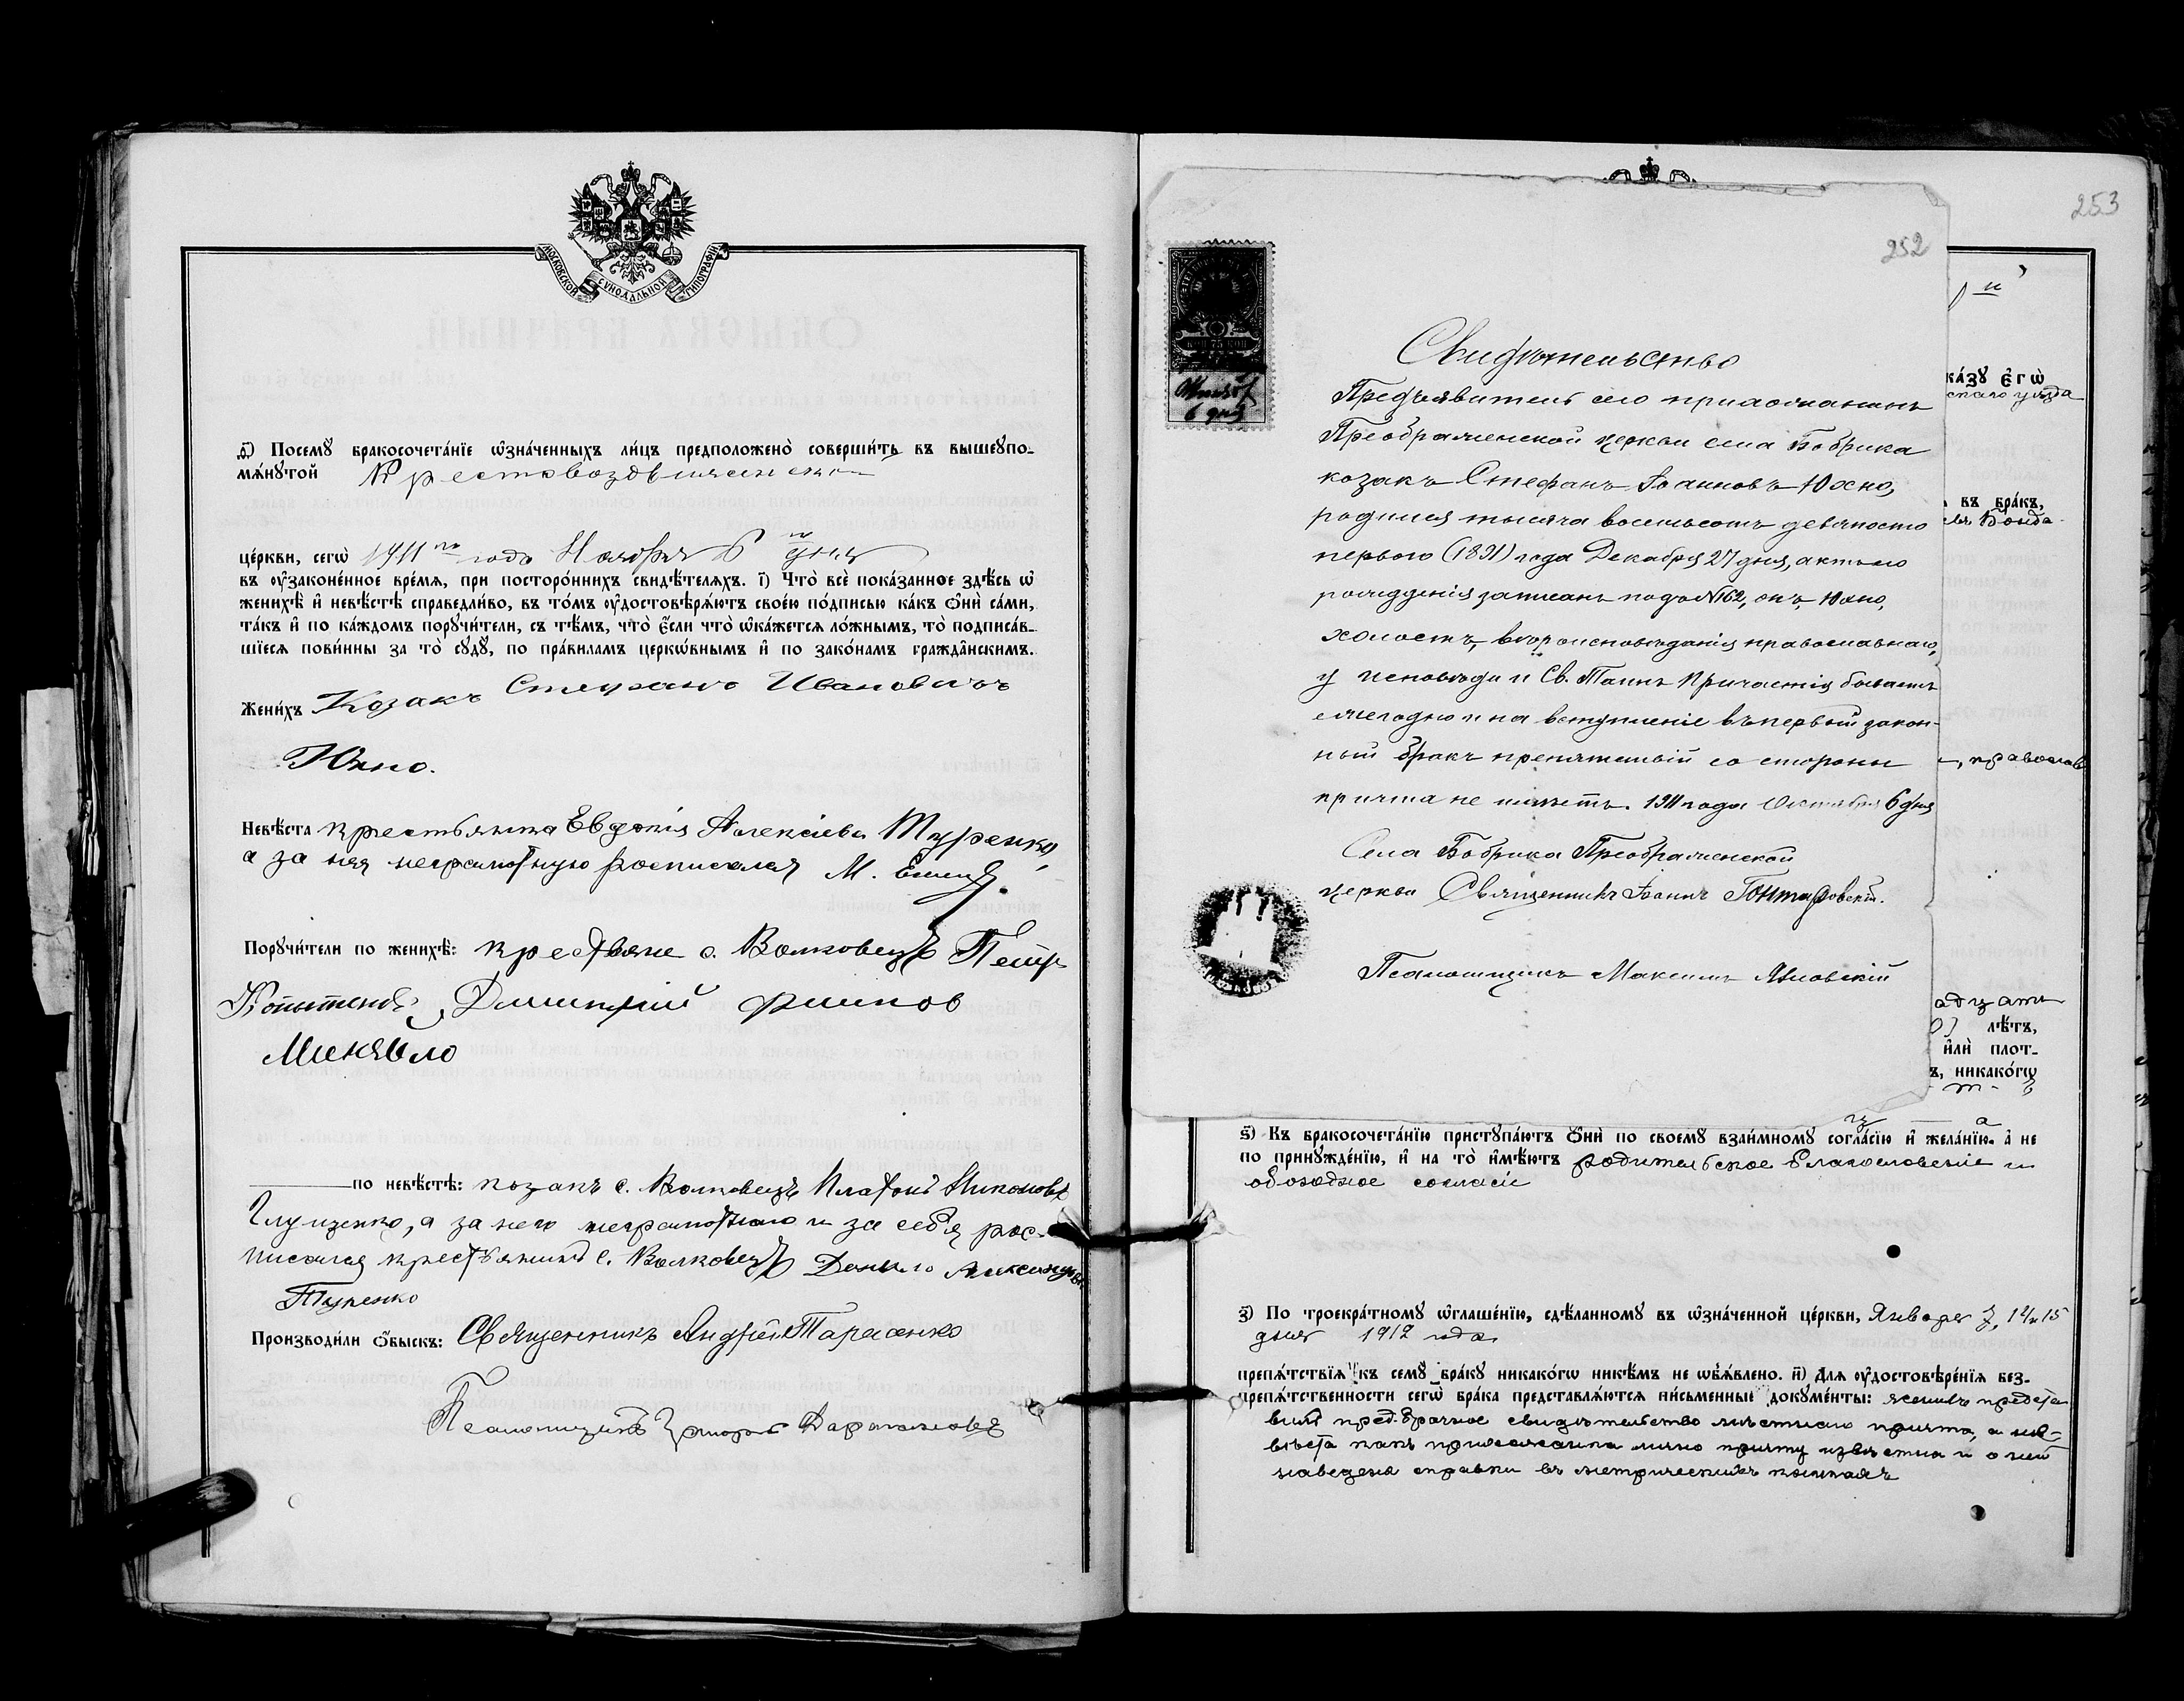 МОСКОВСКОЙ СѴНОДАЛЬНОЙ ТИПОГРАФІИ
Посемꙋ бракосочета́нїе ѡ҆зна́ченныхъ ли́цъ предположено̀ соверши́ть въ вышеꙋпо-
мѧ́нꙋтой Крестовоздвиженской
це́ркви, сегѡ̀ 1911 го года Ноября 6 го дня
въ ᲂу҆зако́ненное вре́мѧ, при посторо́ннихъ свидѣ́телѧхъ. і҃) Что̀ всѐ пока́занное здѣ́сь ѡ҆
женихѣ̀ и҆ невѣ́стѣ справедли́во, въ то́мъ ᲂу҆достовѣрѧ́ютъ свое́ю по́дписью ка́къ ѻ҆нѝ са́ми,
та́къ и҆ по ка́ждомъ порꙋчи́тели, съ тѣ́мъ, что̀ є҆́сли что̀ ѡ҆ка́жетсѧ ло́жнымъ, то̀ подписа́в-
шїесѧ пови́нны за то̀ сꙋдꙋ̀, по пра́виламъ церкѡ́внымъ и҆ по зако́намъ гражда̑нскимъ.
Жени́хъ Козакъ Стефанъ Ивановичъ
Юхно.
Невѣ́ста крестьянка Евдокія Алексіева Туренко,
а за нея неграмотную росписался М.
Порꙋчи́тели по женихѣ̀: крестьяне с. Волковецъ Петръ
Дмитрій
по невѣ́стѣ: козакъ с. Волковецъ Платонъ Никоновъ
Глущенко, а за него неграмотнаго и за себя рос-
писался крестьянинъ с. Волковецъ Данило Александров
Туренко
Производи́ли ѻ҆́быскъ: Священникъ Андрій Тарасенко
Псаломщикъ
253
252
75 КОП
Октября
6 дня
Свидѣтельство
Предъявитель сего прихожанинъ
Преображенской церкви села Бобрика
козакъ Стефанъ Іоанновъ Юхно,
родился тысяча восемьсотъ девяносто
перваго (1891) года Декабря 27 дня, актъ его
рожденія записанъ подъ №162, онъ, Юхно,
холостъ, вѣроисповѣданія православнаго,
у исповѣди и Св. Таинъ Причастія бываетъ
ежегодно и на вступленіе въ первый закон-
ный бракъ препятствій со стороны
причта не имѣетъ. 1911 года Октября 6 дня
Села Бобрика Преображенской
церкви Священникъ Іоаннъ Гонтаровскій.
Псаломщикъ Максимъ Яновскій
ка́зꙋ є҆гѡ̀
скаго уѣзда
въ бра́къ,
Бонда
православ
адцать
лѣ́тъ,
и҆лѝ плот-
никако́гѡ
ѕ҃) Къ бракосочета́нїю пристꙋпа́ютъ ѻ҆нѝ по своемꙋ̀ взаи́мномꙋ согла́сїю и҆ жела́нїю, а҆ не
по принꙋжде́нїю, и҆ на то̀ и҆мѣ́ютъ родительское благословеніе и
обоюдное согласіе
з҃) По троекра́тномꙋ ѡ҆глаше́нїю, сдѣ́ланномꙋ въ ѡ҆зна́ченной це́ркви, Января 7, 14 и 15
дня 1912 года
препѧ́тствїѧ къ семꙋ̀ бра́кꙋ никако́гѡ никѣ́мъ не ѡ҆б̾ѧ́влено. и҃) Длѧ ᲂу҆достовѣре́нїѧ без-
препѧ́тственности сегѡ̀ бра́ка представлѧ́ютсѧ пи́сьменные докꙋме́нты: женихъ предста
вилъ предбрачное свидѣтельство мѣстнаго причта, а не-
вѣста какъ прихожанка лично причту извѣстна и о ней
наведена справки въ метрическихъ книгахъ